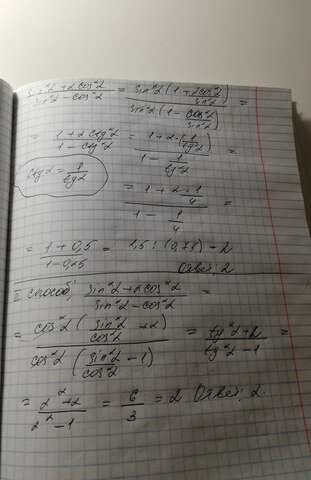 (sin²α + 2cos²α)/(sin²α - cos²α) = (sin²α(1 + 2cos²α/sin²α))/(sin²α(1 - cos²α/sin²α)) =
= (1 + 2ctg²α)/(1 - ctg²α) = (1 + 2·(1/tg²α))/(1 - 1/tg²α) =
ctgα = 1/tgα
= (1 + 2·1/4)/(1 - 1/4) =
= (1 + 0,5)/(1 - 0,25) = 1,5 : (0,75) = 2
Ответ: 2
II способ; (sin²α + 2cos²α)/(sin²α - cos²α) =
= (cos²α(sin²α/cos²α + 2))/(cos²α(sin²α/cos²α - 1)) = (tg²α + 2)/(tg²α - 1) =
= (2² + 2)/(2² - 1) = 6/3 = 2 Ответ: 2.